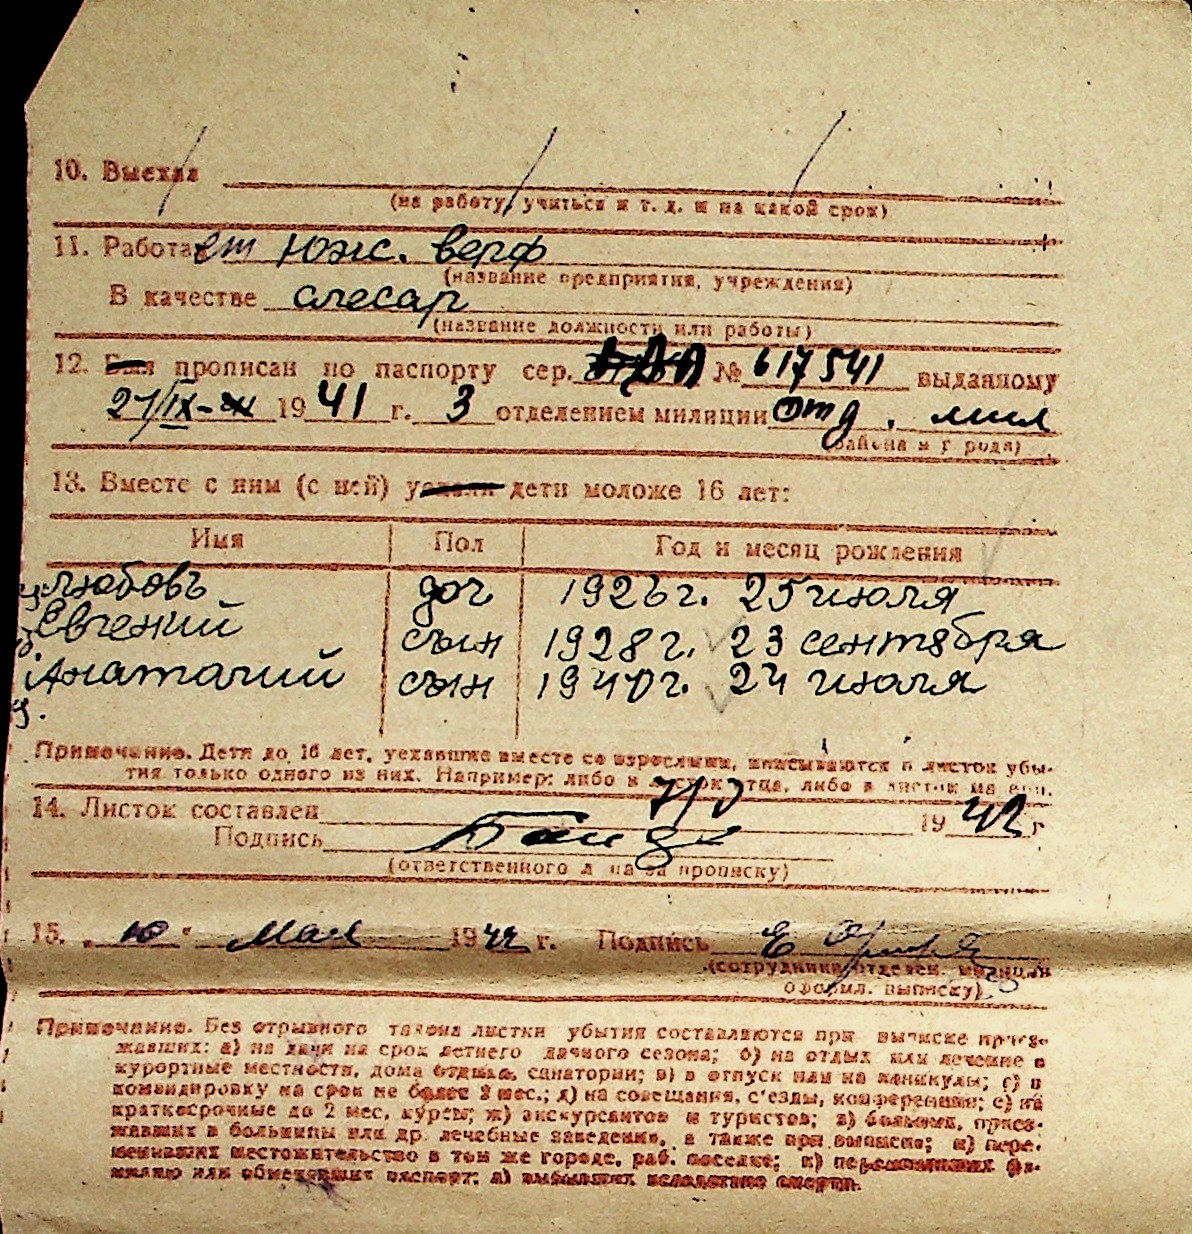 10. Выехал
(на работу, учиться и т. д. и на какой срок)
11. Работает Южс. верф
(название предприятия, учреждения)
В качестве слесар
(название должности или работы)
12. Был прописан по паспорту сер. № 617541 выданному
21/IX 1941 г. 3 отделением милиции отд. мил
(района и города)
13. Вместе с ним (с ней) уехали дети моложе 16 лет:
Имя Пол Год и месяц рождения
Любовь доч 1926 г. 25 июля
Евгений сын 1928 г. 23 сентября
Анатачий сын 1940 г. 24 июля
Примечание. Дети до 16 лет, уехавшие вместе со взрослыми, вписываются в листок убы-
тия только одного из них. Например: либо в листок отца, либо в листок матери.
14. Листок составлен 7/V 1942 г
Подпись
(ответственного лица за прописку)
15. „10“ Мая 1942 г. Подпись Е
(сотрудника отделен. милиции
оформл. выписку)
Примечание. Без отрывного талона листки убытия составляются при выписке приез-
жавших: а) на дачи на срок летнего дачного сезона; б) на отдых или лечение в
курортные местности, дома отдыха, санатории; в) в отпуск или на каникулы; г) в
командировку на срок не более 2 мес.; д) на совещания, с'езды, конференции; е) на
краткосрочные до 2 мес. курсы; ж) экскурсантов и туристов; з) больных, приез-
жавших в больницы или др. лечебные заведения, а также при выписке; и) пере-
менивших местожительство в том же городе, раб. поселке; к) переменивших фа-
милию или обменявших паспорт; л) выбывших вследствие смерти.